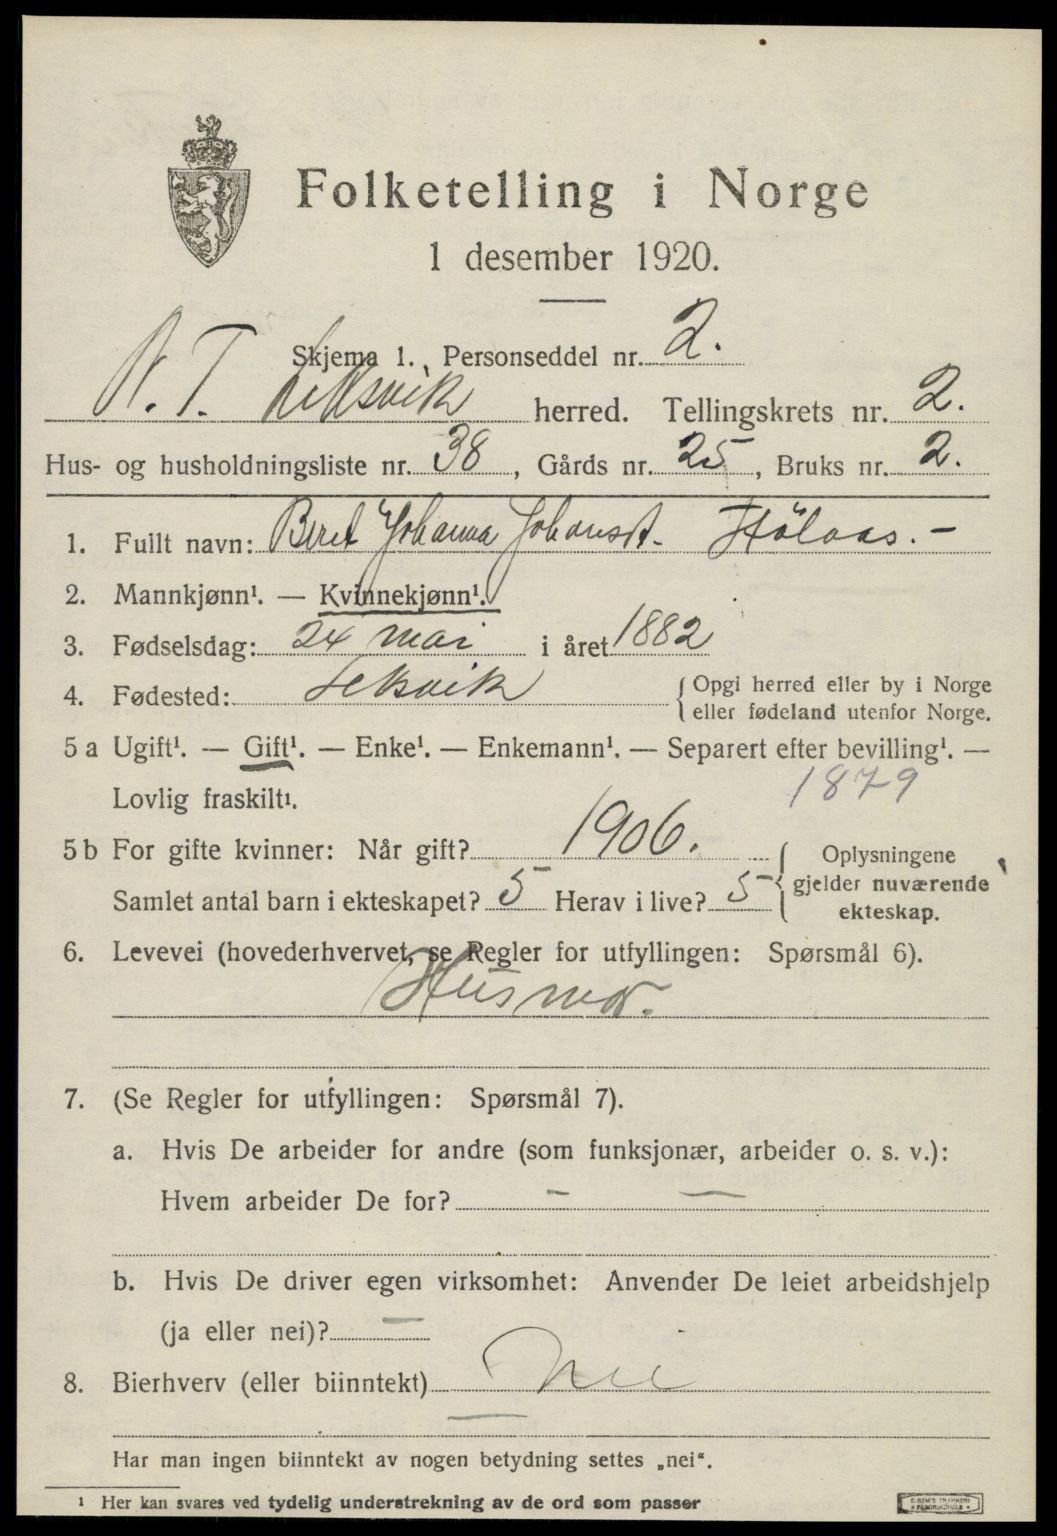 Folketelling i Norge
1 desember 1920.
Skjema 1. Personseddel nr. 2.
N. T. Leksvik herred. Tellingskrets nr. 2.
Hus- og husholdningsliste nr. 38, Gårds nr. 25, Bruks nr. 2.
1. Fullt navn: Beret Johanna Johansdt.
2. Mannkjønn¹. — Kvinnekjønn¹.
3. Fødselsdag: 24 mai i året 1882
4. Fødested: Leksvik {Opgi herred eller by i Norge
eller fødeland utenfor Norge.
5 a Ugift¹. — Gift¹. — Enke¹. — Enkemann¹. — Separert efter bevilling¹. —
Lovlig fraskilt¹. 1879
5 b For gifte kvinner: Når gift? 1906. { Oplysningene
Samlet antal barn i ekteskapet? 5 Herav i live? 5 gjelder nuværende
ekteskap.
6. Levevei (hovederhvervet, se Regler for utfyllingen: Spørsmål 6).
Husmor.
7. (Se Regler for utfyllingen: Spørsmål 7).
a. Hvis De arbeider for andre (som funksjonær, arbeider o. s. v.):
Hvem arbeider De for? — —
b. Hvis De driver egen virksomhet: Anvender De leiet arbeidshjelp
(ja eller nei)? —
8. Bierhverv (eller biinntekt) Nei
—
Har man ingen biinntekt av nogen betydning settes „nei“.
¹ Her kan svares ved tydelig understrekning av de ord som passer